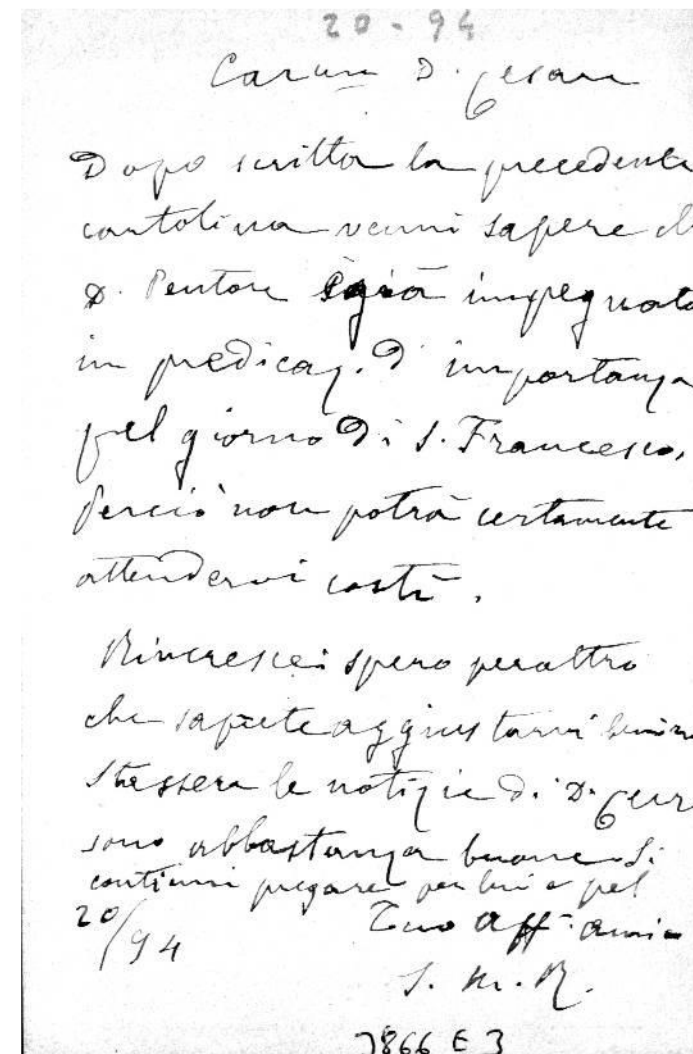 20 - 94
Carmo D. Cesare
Dopo scritta la precedente
cartolina venni sapere ch
D. Pentore è già impegnato
in predicaz. d'importanza
pel giorno di S. Francesco,
Perciò non potrà certamente
attendervi costì.
Rincresce; spero peraltro
che sapete aggiustarvi
Stassera le notizie di D.
sono abbastanza buone. Si
continui pregare per lui e pel
20/94 Tuo aff. amico
S. M. R.
3866 E 3